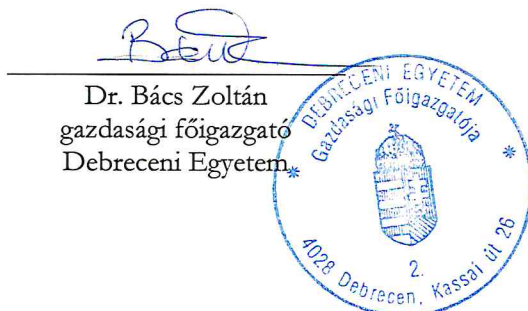 Dr. Bács Zoltán
gazdasági főigazgató
Debreceni Egyetem
DEBRECENI EGYETEM
Gazdasági Főigazgatója
2.
4028 Debrecen, Kassai út 26